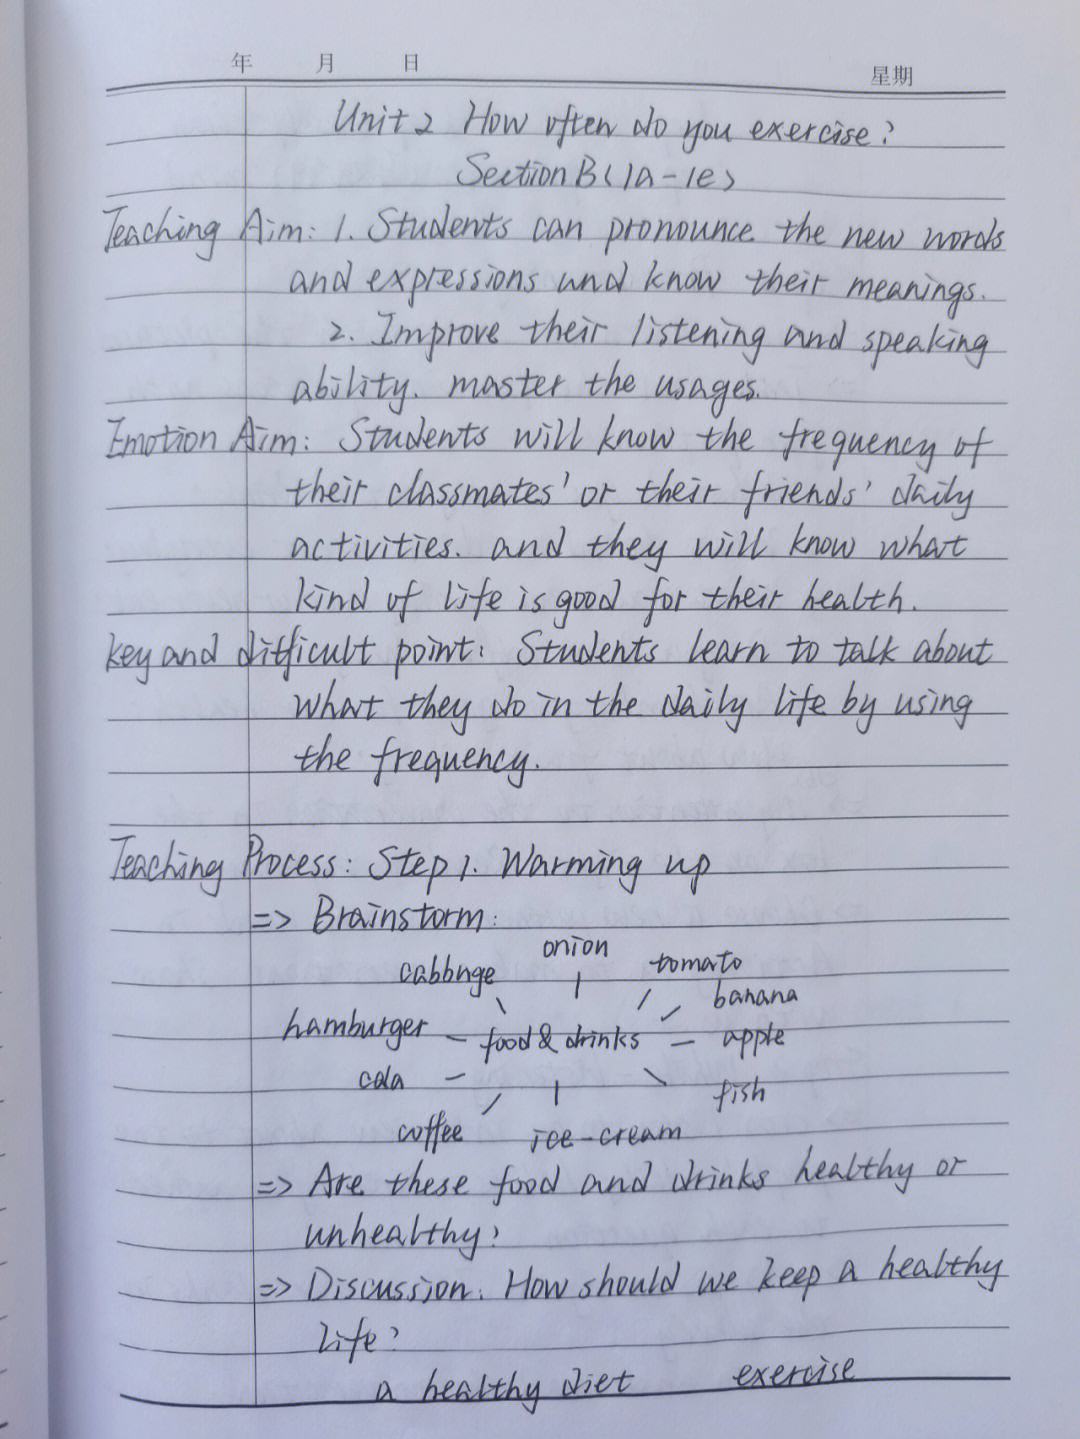 年 月 日 星期
Unit 2 How often do you exercise?
Section B (1a-1e)
Teaching Aim: 1. Students can pronounce the new words
and expressions und know their meanings.
2. Improve their listening and speaking
ability. master the usages.
Emotion Aim: Students will know the frequency of
their classmates' or their friends' daily
activities. and they will know what
kind of life is good for their health.
key and difficult point: Students learn to talk about
what they do in the daily life by using
the frequency.
Teaching Process: Step 1. Warming up
=> Brainstorm:
onion
cabbnge tomato
banana
hamburger food & drinks apple
cola fish
coffee ice-cream
=> Are these food and drinks healthy or
unhealthy?
=> Discussion: How should we keep a healthy
life?
a healthy diet exercise